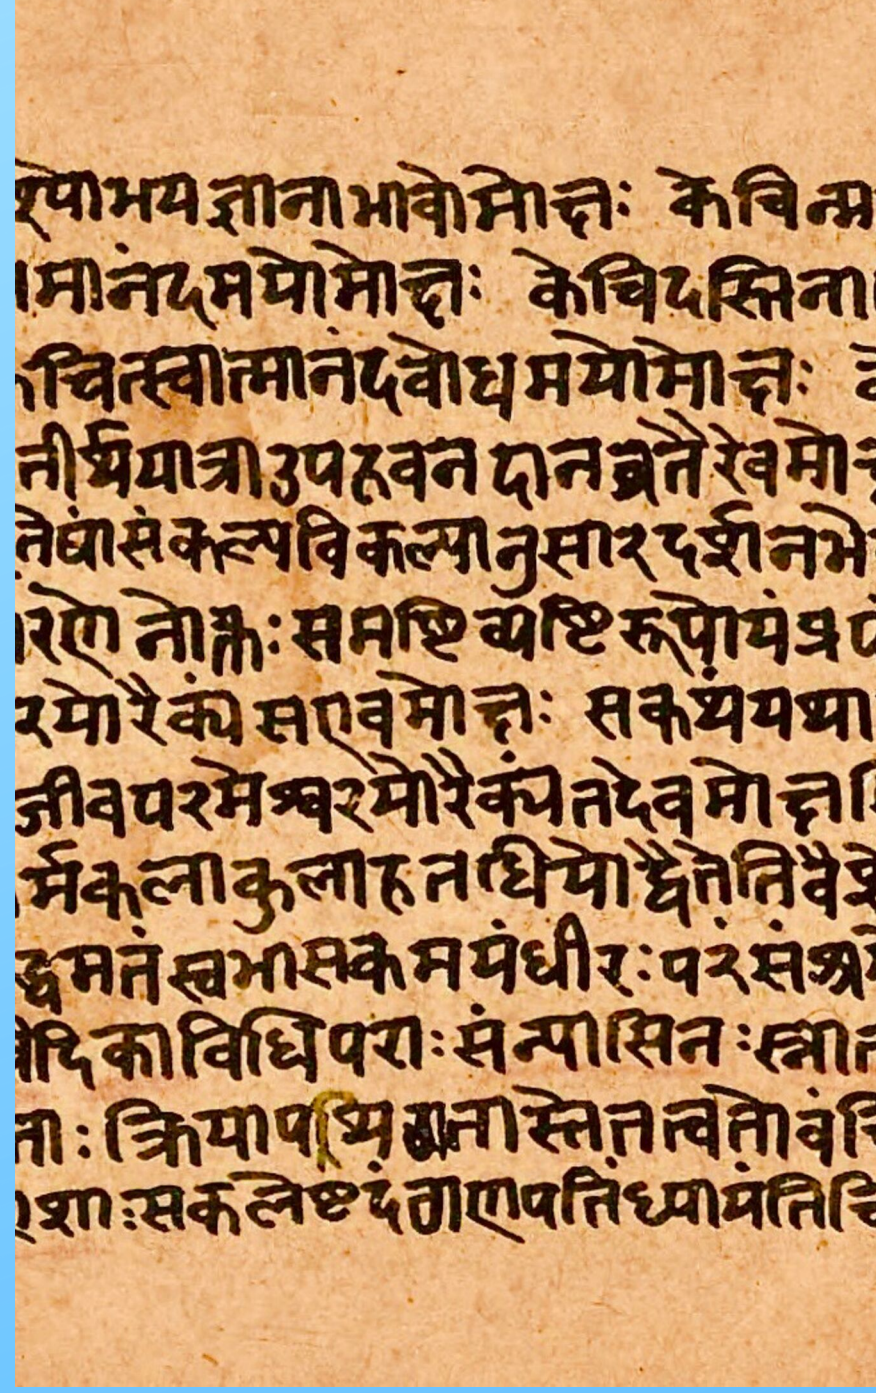 श्योभयज्ञानाभावोमोक्षः केचिन्म
मानंदमयोमोक्षः केचिदस्तिना
चित्स्वात्मानंदबोधमयोमोक्षः के
तीर्थयात्राजपहवनदानव्रतैरेवमो
तेषांसंकल्पविकल्पानुसारदर्शनभे
रणेनोक्तः समष्टिव्यष्टिरूपोयंप्र
रयोरैक्यंसएवमोक्षः सकथंयथा
जीवपरमेश्वरयोरैक्यंतदेवमोक्ष
र्मकलाकुलाहतधियोद्वैतेतिवै
मतंस्वभासकमयंधीरः परंसंश्रये
वेदिकाविधिपराः संन्यासिनः स्ना
ताः क्रियापथ्यगतास्तेतत्वतोवंचि
शाः सकलेष्टदंगणपतिंध्यायंतिचि